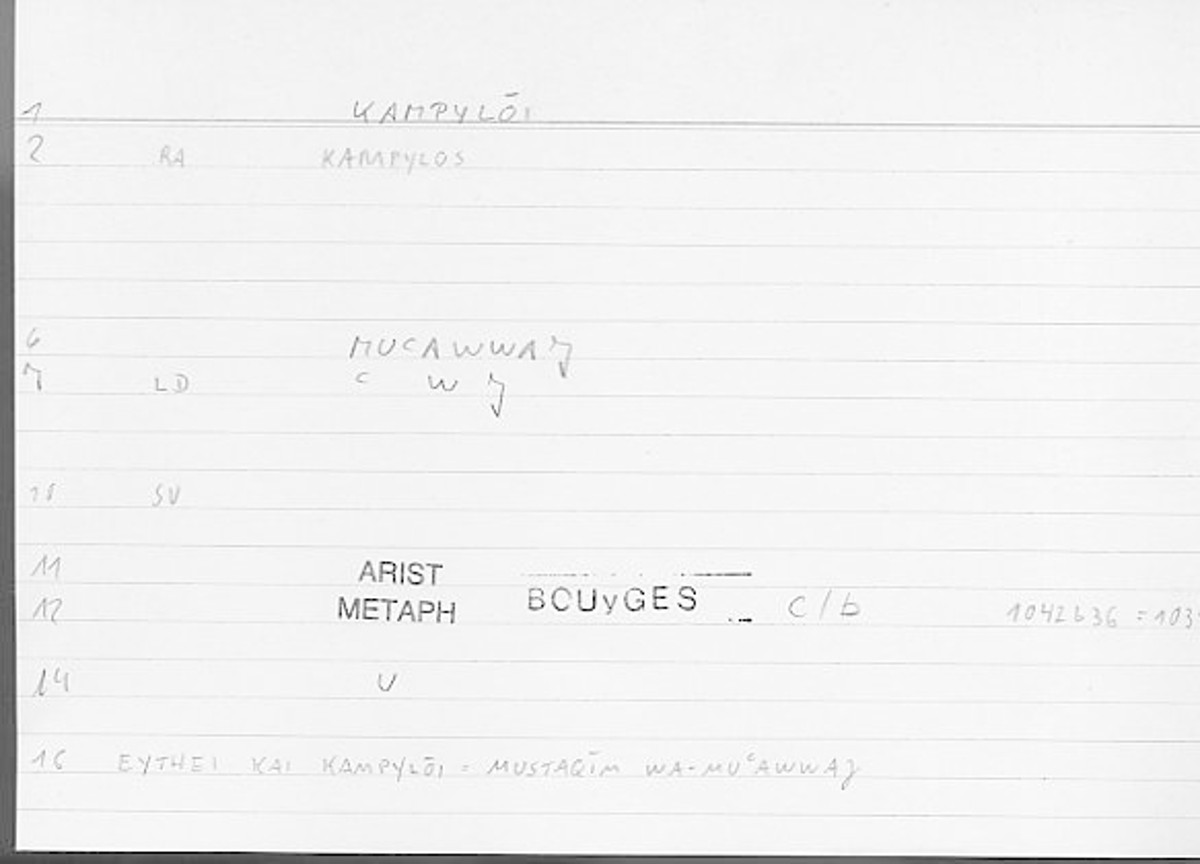 1 KAMPYLŌI
2 RA KAMPYLOS
6 MUCAWWAJ
7 LD C W J
SV
11 ARIST
12 METAPH BOUYGES C/b 1042b36 = 103
14 U
16 EYTHEI KAI KAMPYLŌI = MUSTAQĪM WA-MUᶜAWWAJ